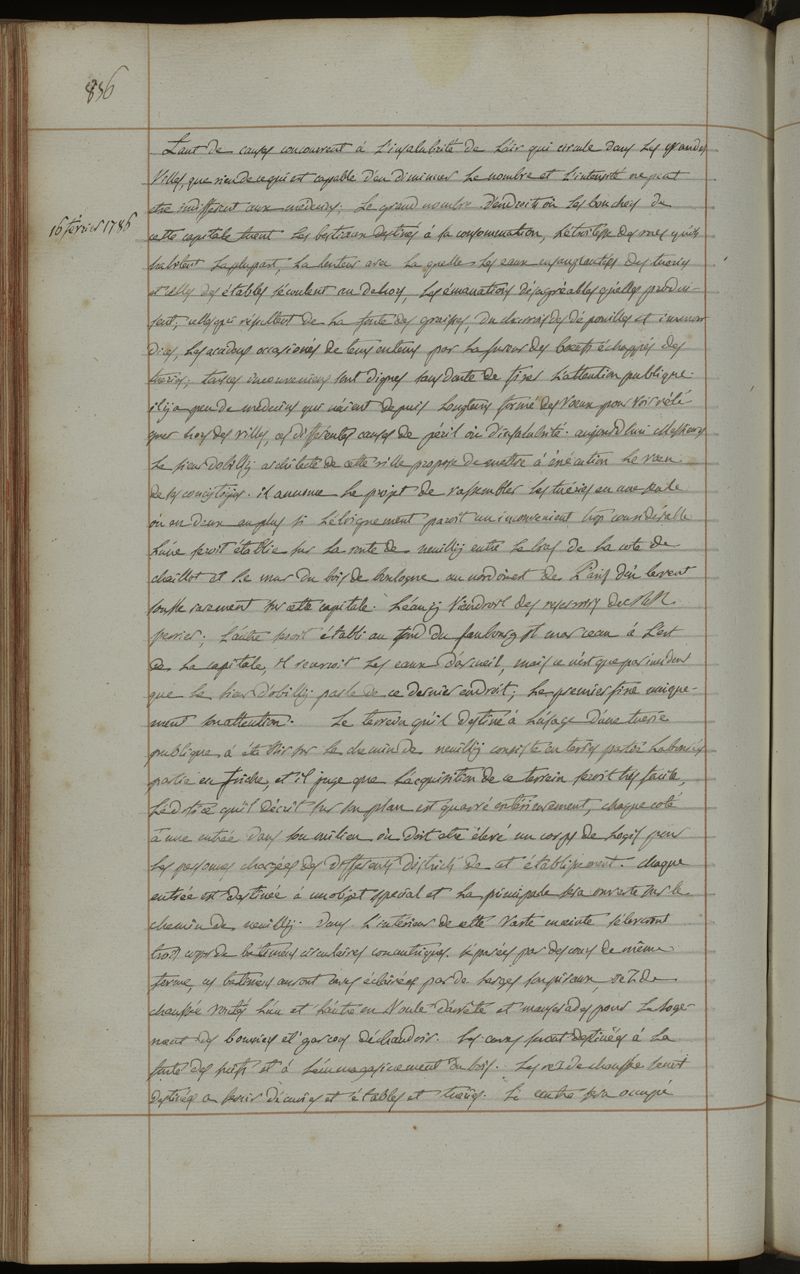 836
Tant de causes concourrent à l'insalubrité de l'air qui circule dans les grandes
Villes, que rien de ce qui est capable d'en diminuer le nombre et l'intensité ne peut
etre indifferent aux médecins; Le grand nombre d'endroits où les bouchers de
16 fevrier 1786
cette capitale tuent les bestiaux destinés à sa consommation, l'étroitesse des rues qu'ils
habitent la pluspart, la lenteur avec la quelle les eaux ensanglantées des tueries
et celles des étables s'écoulent au dehors, les émanations désagréables qu'elles produi-
sent, celles qui résultent de la fonte des graisses, du charrois des dépouilles et immon-
dices, les accidens occasionés de tems en tems par la fureur des boeufs échappés des
tueries; tous ces inconveniens sont dignes sans doute de fixer l'attention publique.
il y a peu de médecins qui n'aient depuis longtems formé des voeux pour voir relé-
guer hors des villes, ces differentes causes de péril ou d'insalubrité. aujourd'hui Messieurs
Le sieur Dobilly architecte de cette ville propose de mettre à éxécution le voeu
de ses concitoyens. il annonce le projet de rassembler les tueries en une seule
ou en deux au plus si l'éloignement paroit un inconvenient trop considérable
L'une seroit établie sur la route de neuilly entre le bas de la cote de
chaillot et le mur du bois de boulogne au nord ouest de Paris d'où le vent
souffle rarement sur cette capitale. L'eau y viendroit des reservoirs de MM.
perrier; L'autre seroit établi au fond du faubourg st marceau à l'est
de la capitale, il recevroit les eaux d'arcueil, mais ce n'est que par incident
que le sieur Dobilly parle de ce dernier endroit; le premier fixe unique-
ment son attention. Le terrein qu'il destine à l'usage d'une tuerie
publique à établir sur le chemin de neuilly consiste en terres partie labourées
partie en friche, et il juge que l'acquisition de ce terrein seroit très facile,
L'édifice qu'il décrit sur son plan est quarré extérieurement, chaque coté
a une entrée dans son milieu où doit etre élevé un corps de logis pour
les personnes chargées des differents districts de cet établissement. chaque
entrée est destinée à un objet special et la principale sera ouverte sur le
chemin de neuilly. dans l'interieur de cette vaste enceinte s'éleveront
trois corps de batimens circulaires concentriques séparés par des cours de même
forme, ces batimens auront caves éclairées par de larges soupiraux, rez de
chaussée voutés l'un et l'autre en voute d'arrête et mansardes pour le loge-
ment des bouviers et garçons d'échaudoir. Les caves seront destinées à la
fonte des suifs et à l'emmagasinement du bois. Les rez de chaussée seront
destinés a servir d'écuries et étables et tueries. Le centre sera occupé